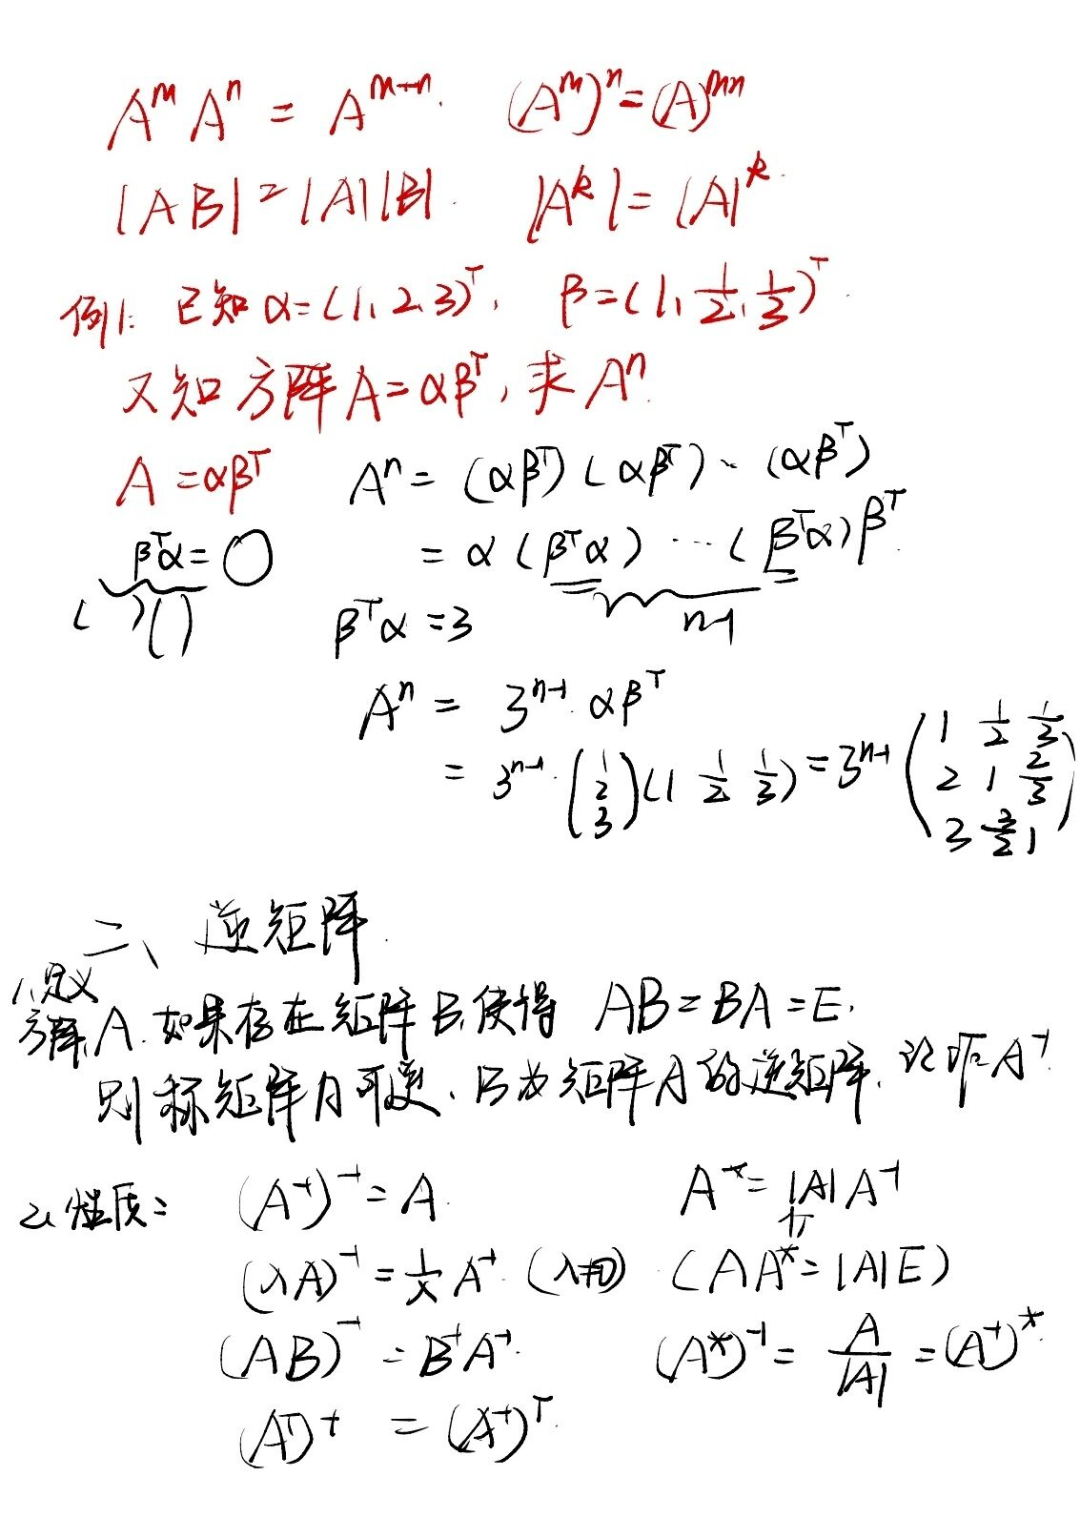 A^m A^n = A^{m+n}. (A^m)^n = (A)^{mn}
|AB| = |A||B|. |A^k| = |A|^k.
例1: 已知 α=(1, 2, 3)^T, β=(1, 1/2, 1/3)^T.
又知方阵 A=αβ^T, 求 A^n.
A = αβ^T A^n = (αβ^T)(αβ^T)…(αβ^T)
β^Tα = ○ = α(β^Tα)…(β^Tα)β^T.
( )( ) β^Tα = 3 n-1
A^n = 3^{n-1}. αβ^T
= 3^{n-1}. (1 2 3)(1 1/2 1/3) = 3^{n-1} (1 1/2 1/3
2 1 2/3
3 3/2 1)
二、逆矩阵.
1. 定义
方阵A. 如果存在矩阵B, 使得 AB=BA=E.
则称矩阵A可逆. B为矩阵A的逆矩阵. 记作A^{-1}
2. 性质: (A^{-1})^{-1} = A. A^* = |A|A^{-1}
(λA)^{-1} = 1/λ A^{-1}. (λ≠0) (AA^* = |A|E)
(AB)^{-1} = B^{-1}A^{-1}. (A^*)^{-1} = A/|A| = (A^{-1})^*.
(A^T)^{-1} = (A^{-1})^T.